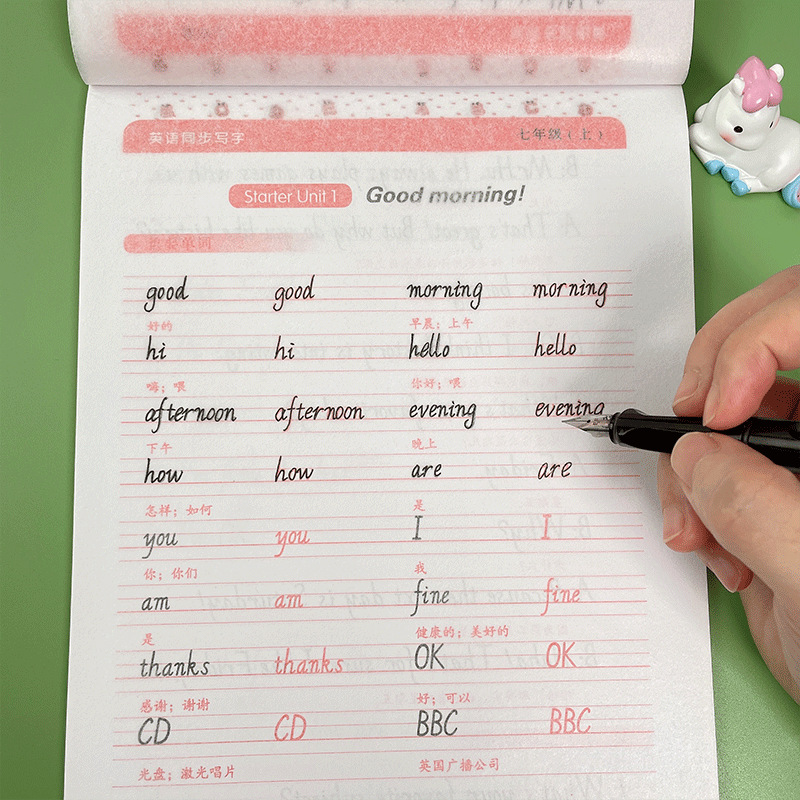 英语同步写字 七年级（上）
Starter Unit 1 Good morning!
good good morning morning
好的 早晨；上午
hi hi hello hello
嗨；喂 你好；喂
afternoon afternoon evening evening
下午 晚上
how how are are
怎样；如何 是
you you I I
你；你们 我
am am fine fine
是 健康的；美好的
thanks thanks OK OK
感谢；谢谢 好；可以
CD CD BBC BBC
光盘；激光唱片 英国广播公司